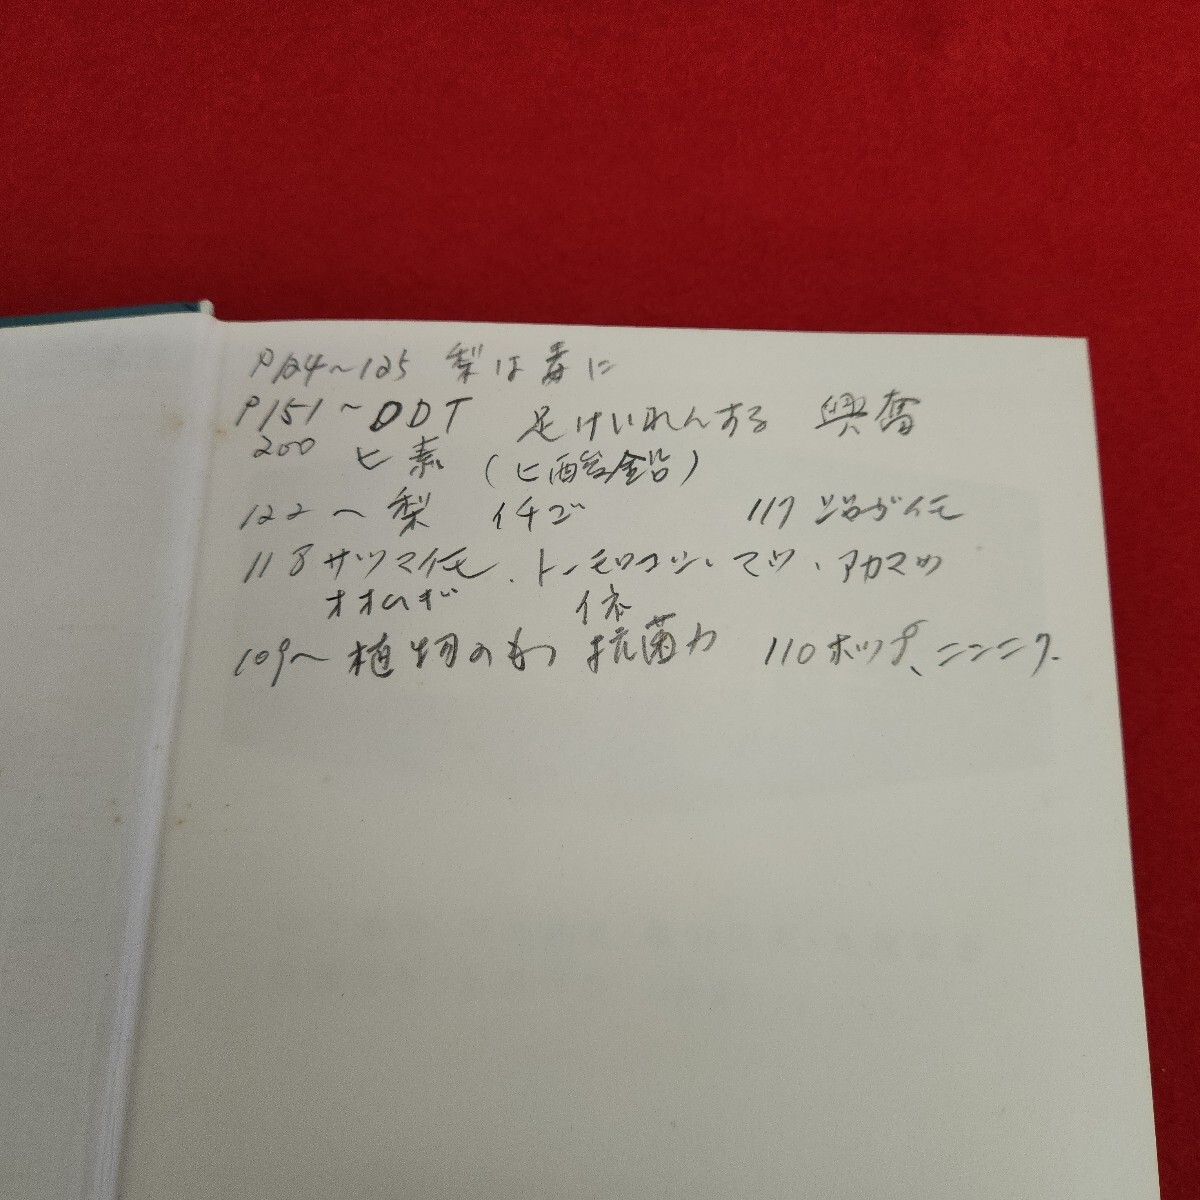 P124〜125 梨は毒に
P151〜DDT 足けいれんする 興奮
200 ヒ素 (ヒ酸鉛)
122〜梨 イチゴ 117 ジャガイモ
118 サツマイモ、トーモロコシ、マツ、アカマツ
オオムギ イネ
109〜植物のもつ 抗菌力 110 ホップ、ニンニク.